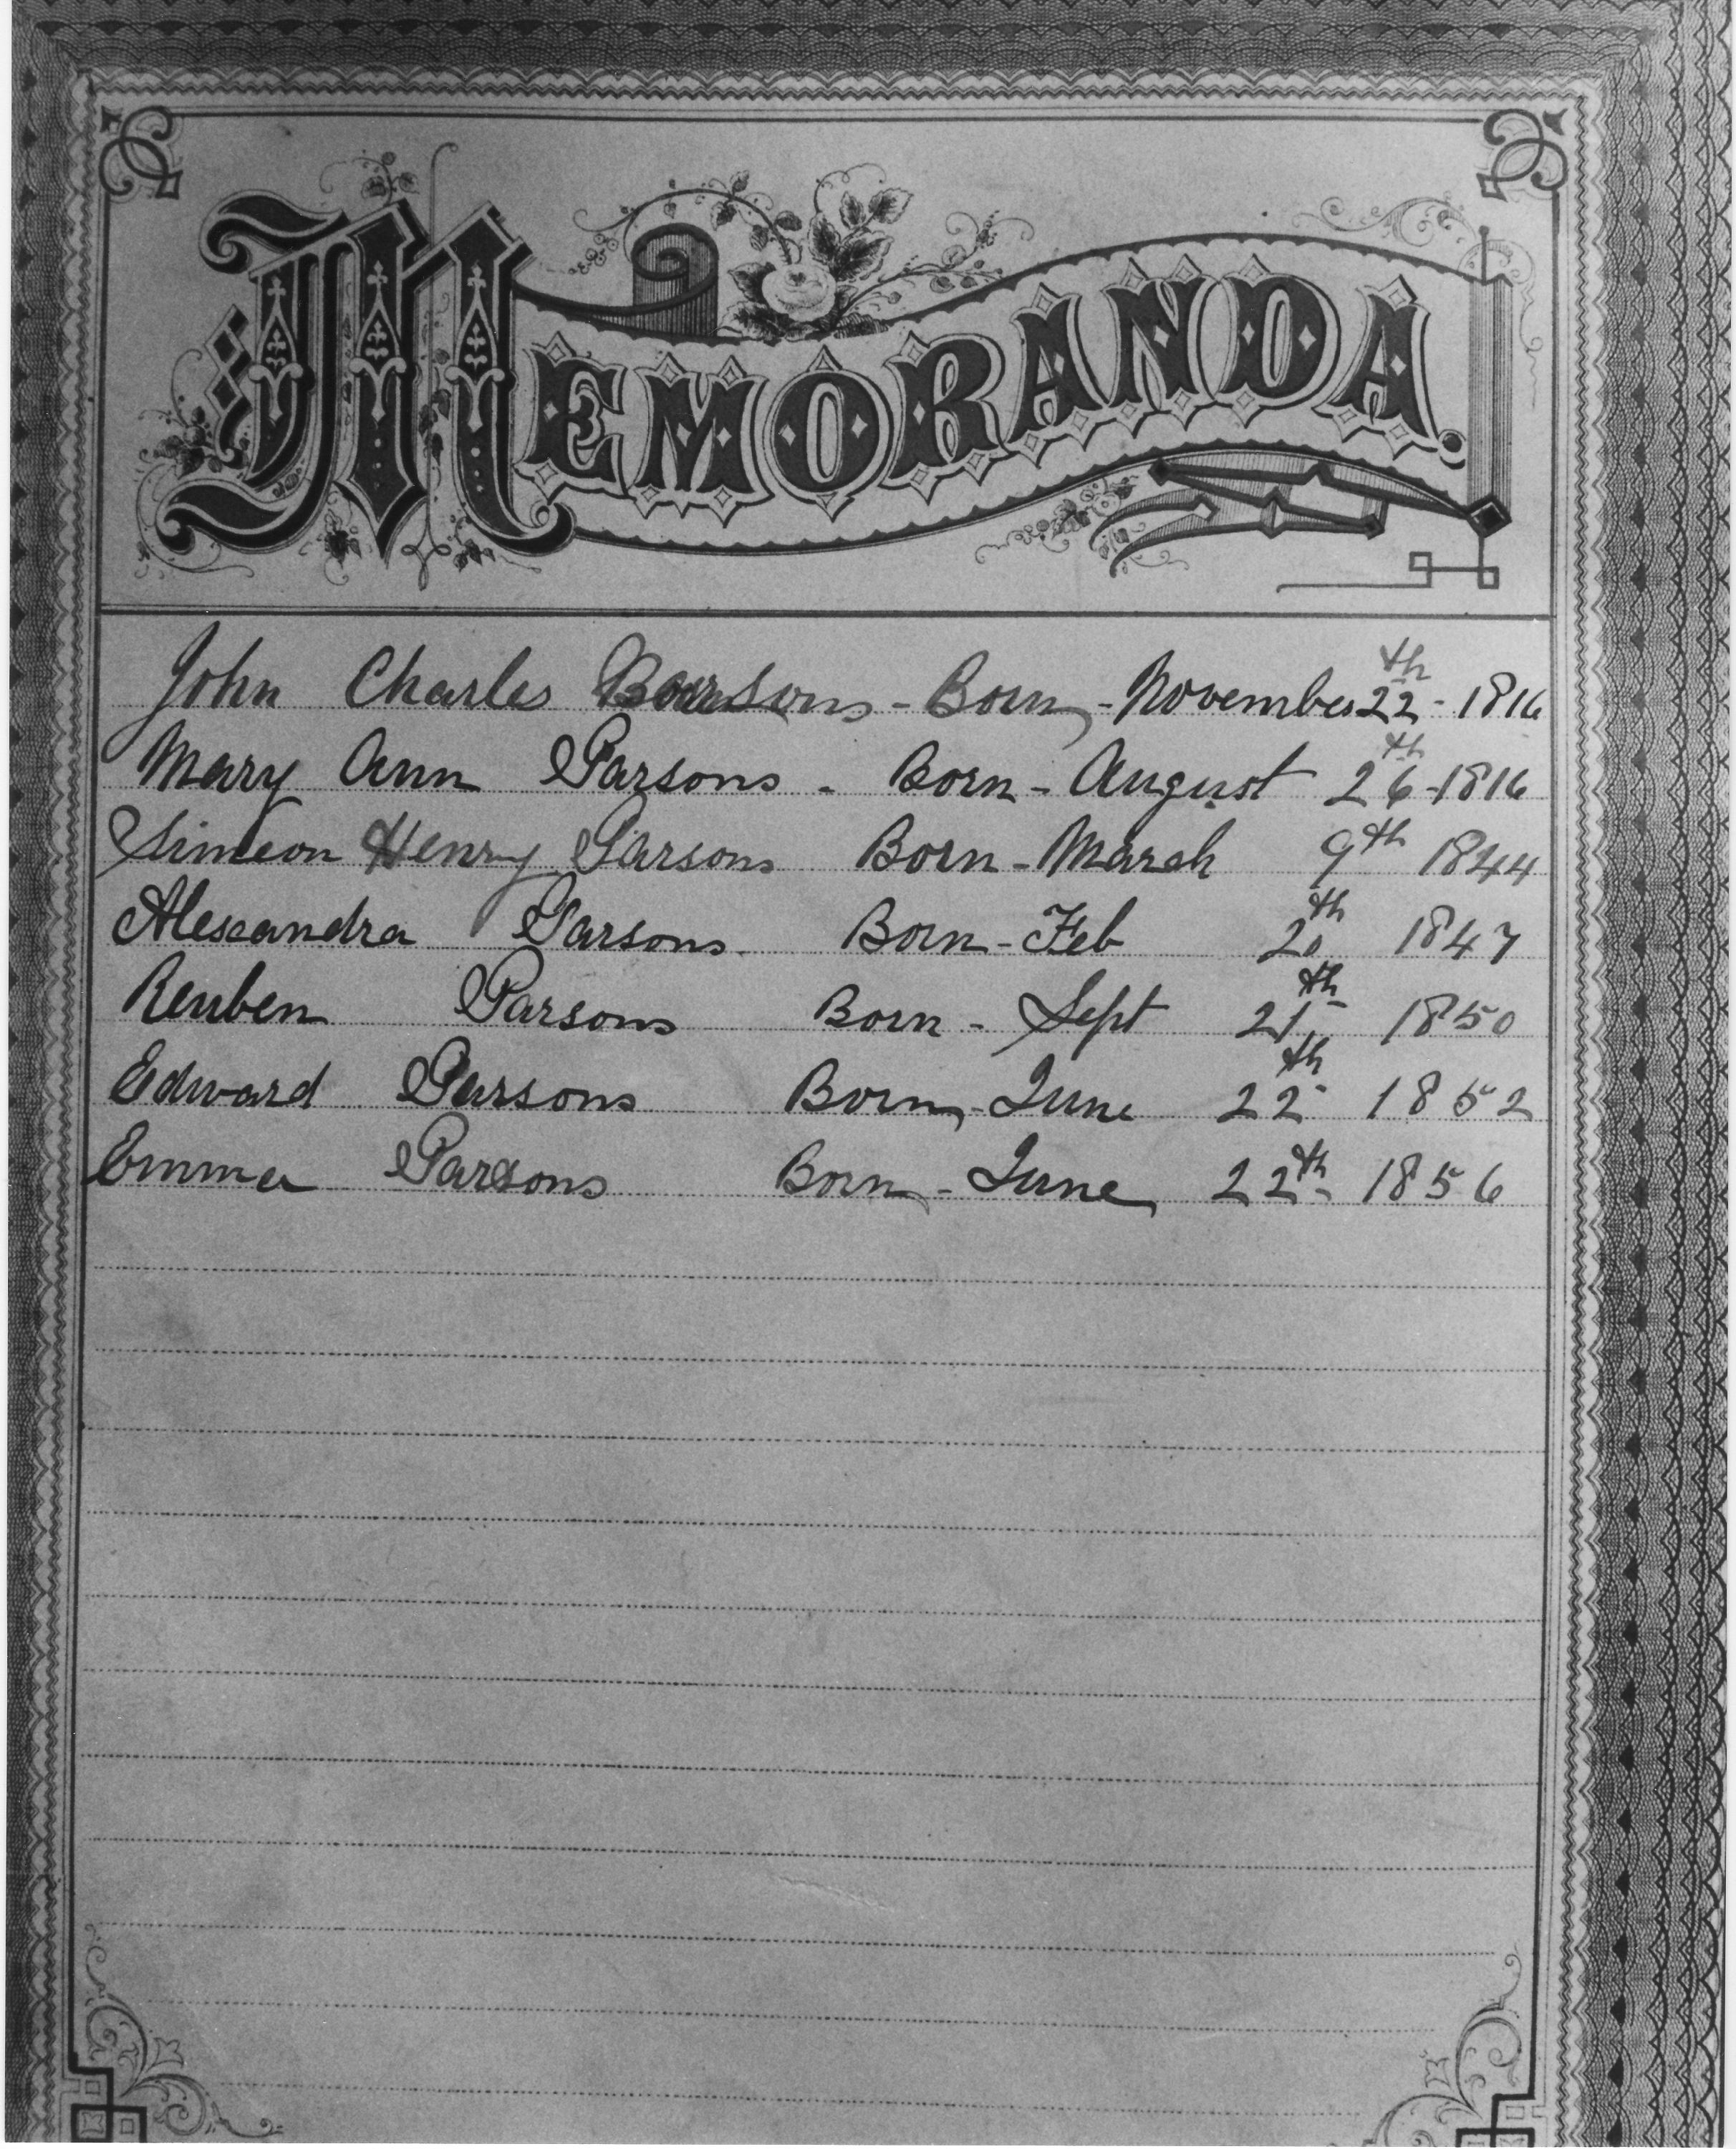 MEMORANDA.
John Charles Parsons - Born - November 22th - 1816
Mary Ann Parsons - Born - August 26th - 1816
Simeon Henry Parsons Born - March 9th 1844
Alexandra Parsons Born - Feb 20th 1847
Reuben Parsons Born - Sept 21th 1850
Edward Parsons Born - June 22th 1852
Emma Parsons Born - June 22th 1856